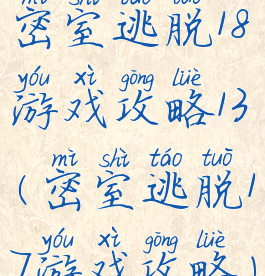 mì shì táo tuō
密室逃脱18
yóu xì gōng lüè
游戏攻略13
mì shì táo tuō
(密室逃脱1
yóu xì gōng lüè
7游戏攻略1